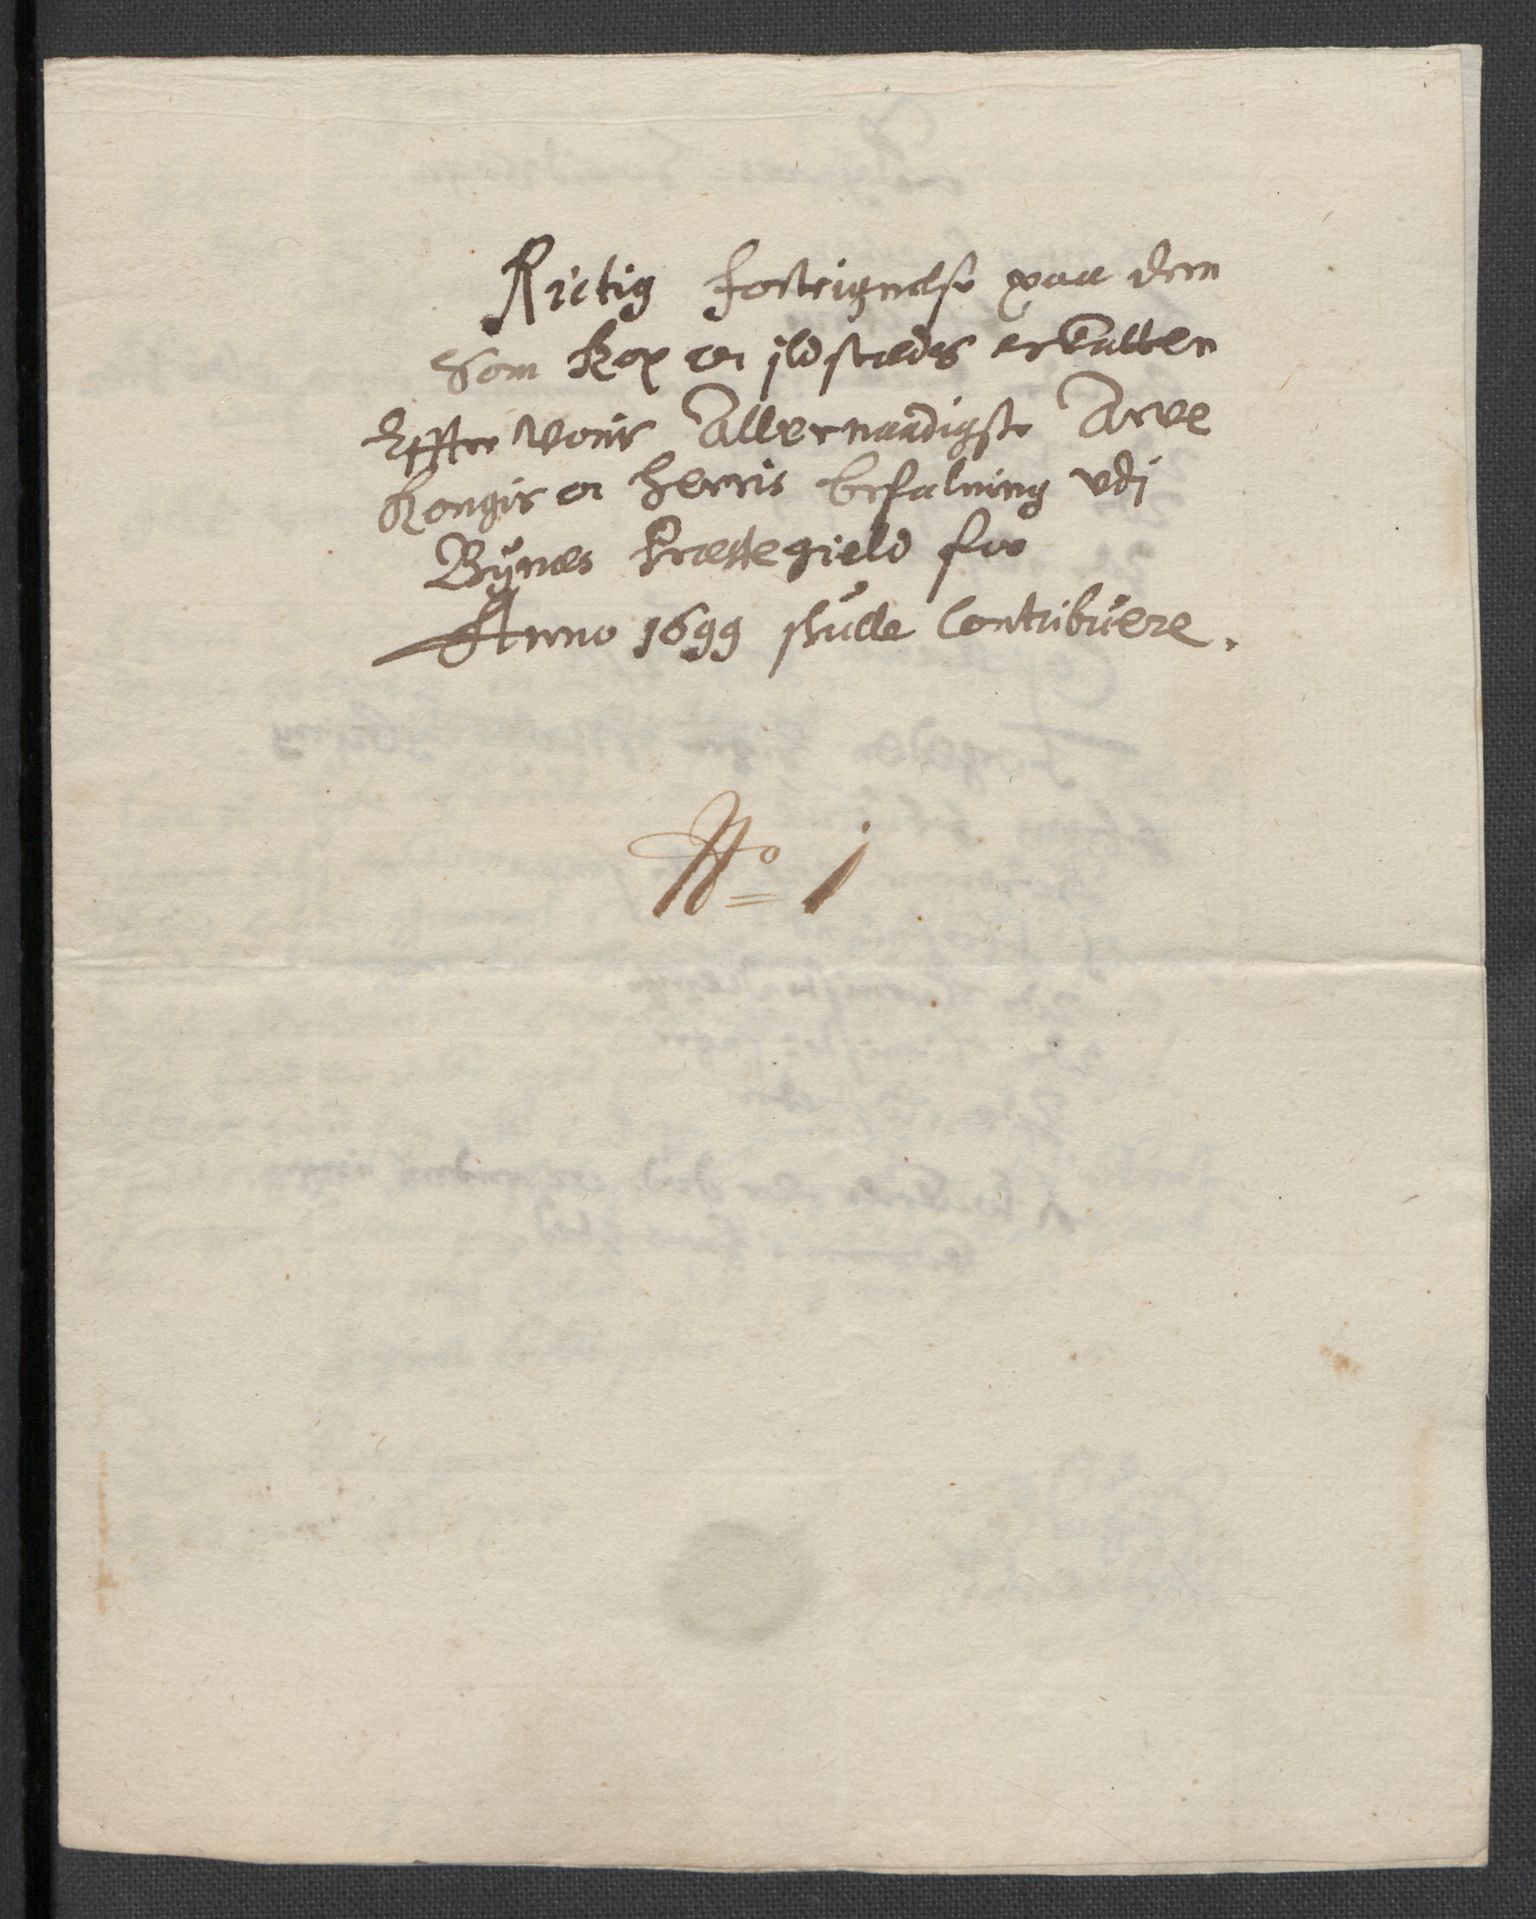 Rictig forteignelse paa dem
Som Kop oc jldstædes skatten
Effter Voris Allernaadigste Arve
Kongis oc Herris befalning udj
Bÿnæs Præstegield for
Anno 1699 skulle Contribuere.
No 1